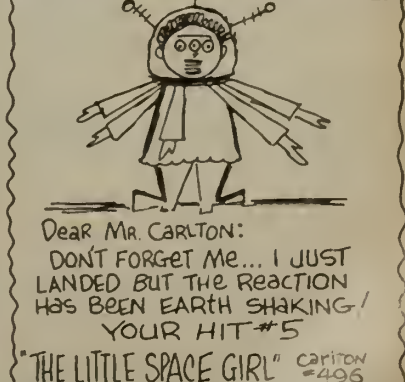 Dear Mr. CARLTON:
DON'T FORGET Me... I JUST
LANDED BUT THE REACTION
HAS BEEN EARTH SHAKING!
YOUR HIT #5
"THE LITTLE SPACE GIRL" Carlton
#496